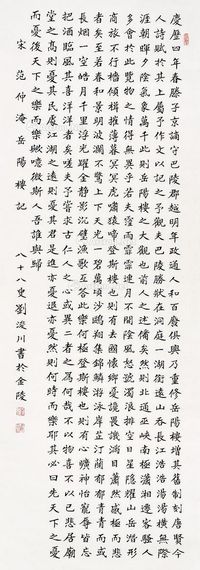 慶曆四年春滕子京謫守巴陵郡越明年政通人和百廢俱興乃重修岳陽樓增其舊制刻唐賢今
人詩賦於其上屬予作文以記之予觀夫巴陵勝狀在洞庭一湖銜遠山吞長江浩浩湯湯橫無際
涯朝暉夕陰氣象萬千此則岳陽樓之大觀也前人之述備矣然則北通巫峽南極瀟湘遷客騷人
多會於此覽物之情得無異乎若夫霪雨霏霏連月不開陰風怒號濁浪排空日星隱耀山岳潛形
商旅不行檣傾楫摧薄暮冥冥虎嘯猿啼登斯樓也則有去國懷鄉憂讒畏譏滿目蕭然感極而悲
者矣至若春和景明波瀾不驚上下天光一碧萬頃沙鷗翔集錦鱗游泳岸芷汀蘭郁郁青青而或
長煙一空皓月千里浮光躍金靜影沉璧漁歌互答此樂何極登斯樓也則有心曠神怡寵辱皆忘
把酒臨風其喜洋洋者矣嗟夫予嘗求古仁人之心或異二者之為何哉不以物喜不以己悲居廟
堂之高則憂其民處江湖之遠則憂其君是進亦憂退亦憂然則何時而樂耶其必曰先天下之憂
而憂後天下之樂而樂歟噫微斯人吾誰與歸
宋 范仲淹岳陽樓記 八十八叟劉浚川書於金陵